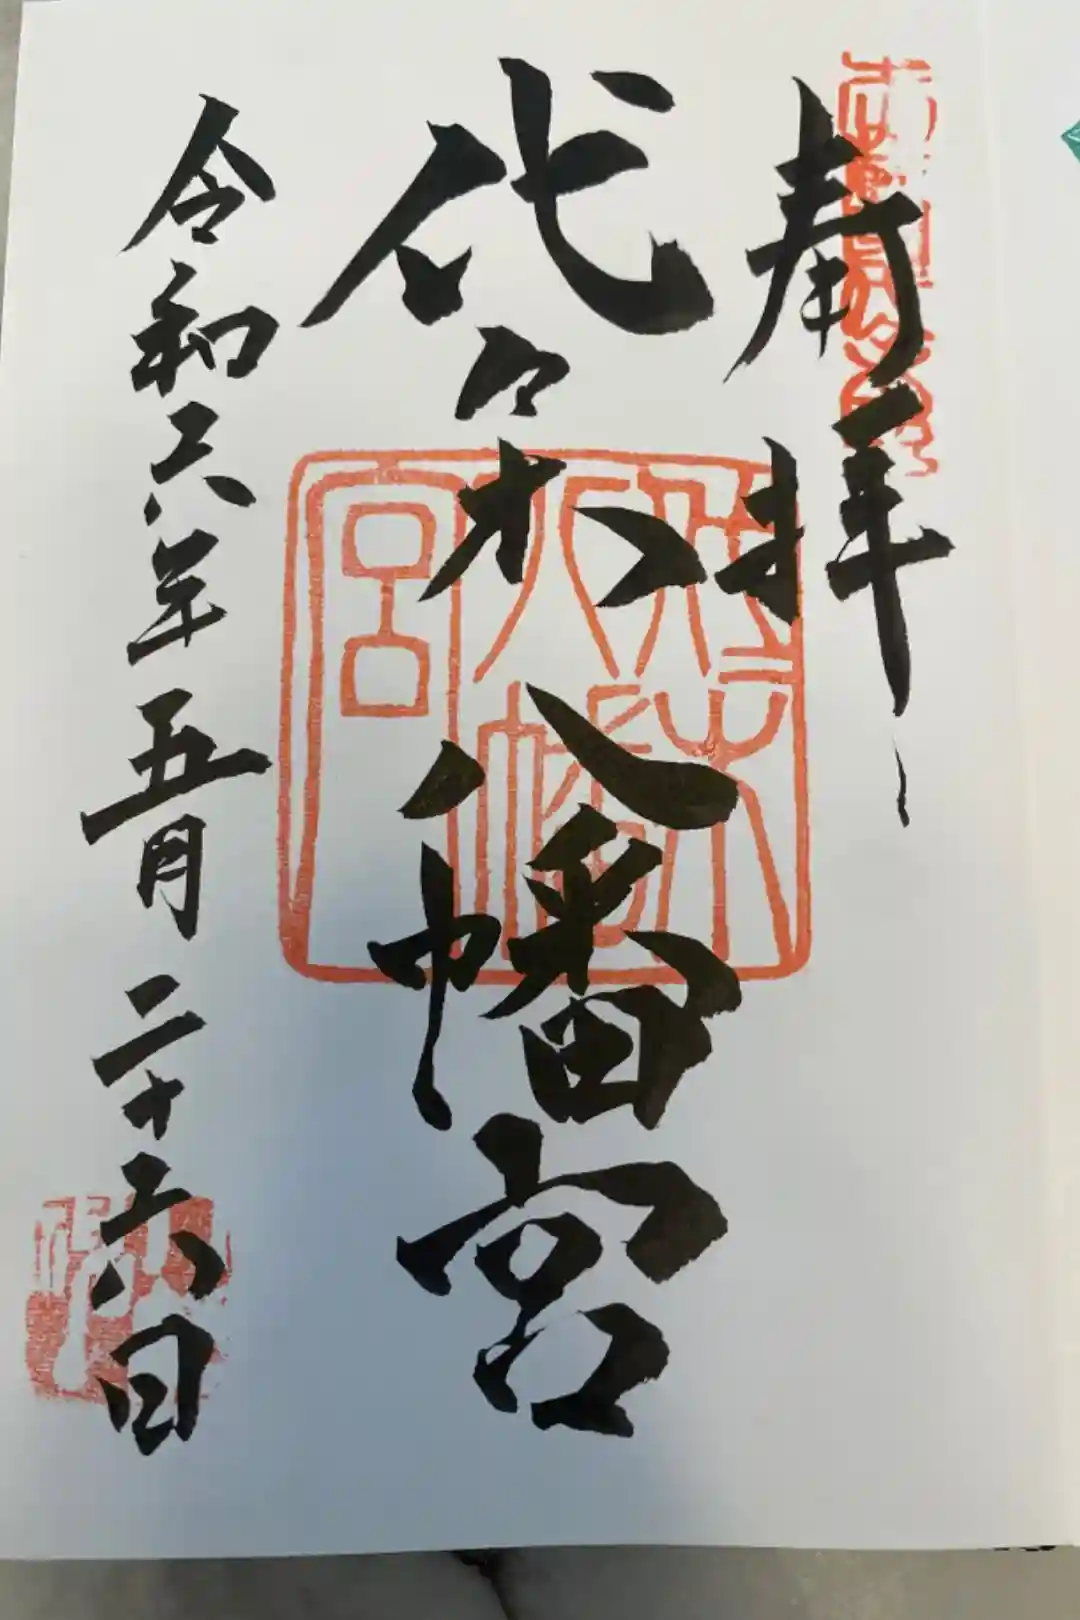 奉拝
代々木八幡宮
令和六年五月二十六日
代々木八幡宮